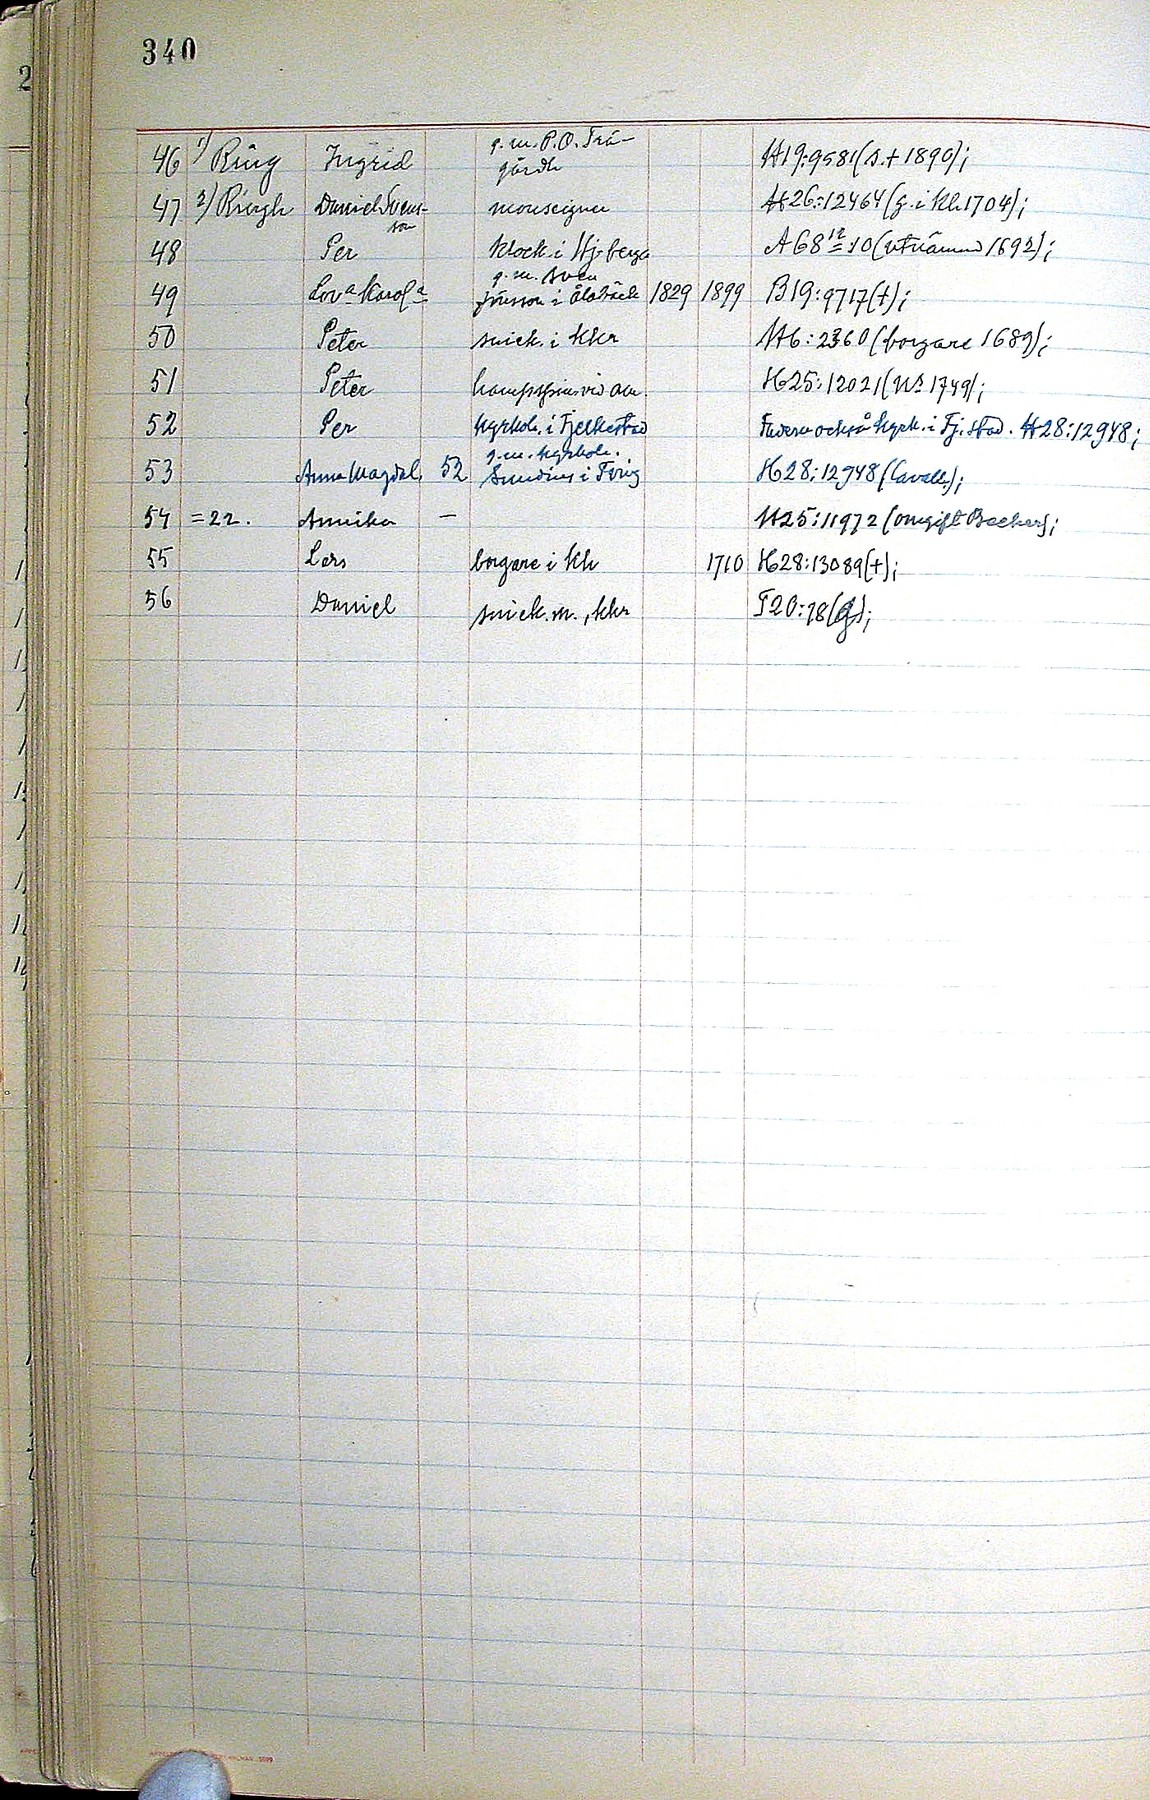 340
46 1) Ring Ingrid g. m. P. O. Trä-
gårdh H19:9581 (s. + 1890);
47 2) Ringh Daniel Svens-
son monseigneur H26:12464 (g. i Kh. 1704);
48 Per klock. i Hj. berga A68 :10 (utnämnd 1692);
49 Lovᵃ Karolᵃ g. m. Sven
Jönsson i 1829 1899 B19:9717 (+);
50 Peter snick. i Kkr H6:2360 (borgare 1689);
51 Peter H25:12021 (1749);
52 Per kyrkoh. i Fjelkestad också kyrk. i Fj. stad. H28:12948;
53 Anna Magdal. 52 g. m. kyrkoh.
i H28:12948 (Cavall.);
54 = 22. Annika — H25:11972 (omgift Becker);
55 Lars borgare i Kh 1710 H28:13089 (+);
56 Daniel snick. m., Kkr T20:98 (g);